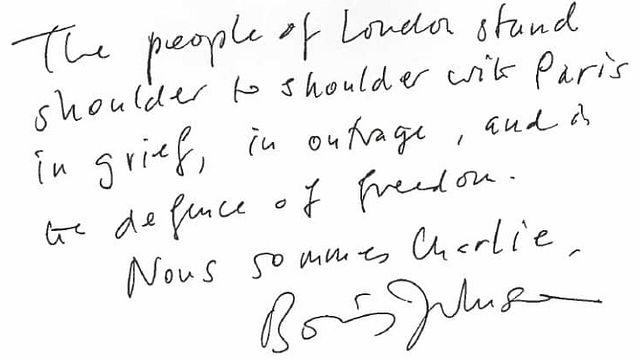 The people of London stand
shoulder to shoulder with Paris
in grief, in outrage, and in
the defence of freedom.
Nous sommes Charlie.
Boris Johnson